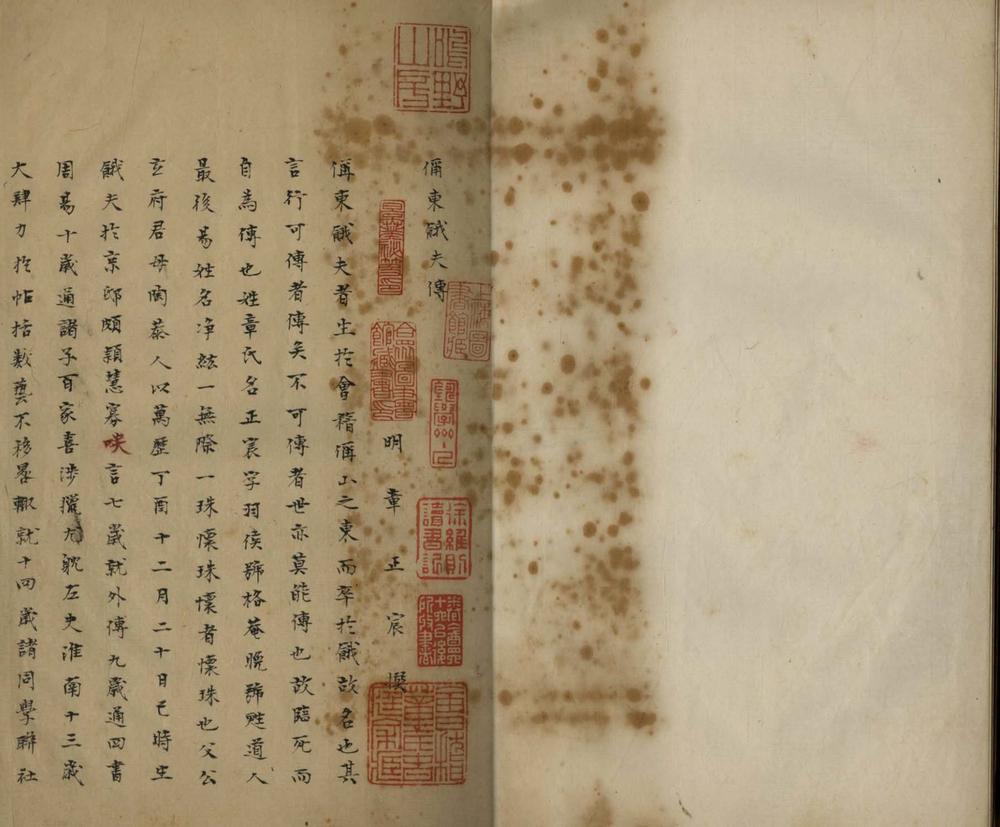 偁東餓夫傳
明章正宸撰
偁東餓夫者生於會稽偁山之東而卒於餓故名也其
言行可傳者傳矣不可傳者世亦莫能傳也故臨死而
自為傳也姓章氏名正宸字羽侯號格菴晚號甦道人
最後易姓名淨絃一無際一珠懷珠懷者懷珠也父公
玄府君母陶恭人以萬歷丁酉十二月二十日巳時生
餓夫於京邸頗穎慧寡唉言七歲就外傳九歲通四書
周易十歲通諸子百家喜涉獵尤躭左史淮南十三歲
大肆力於帖括數藝不移晷輒就十四歲諸同學聯社
鳴野山房
徐維則讀書記